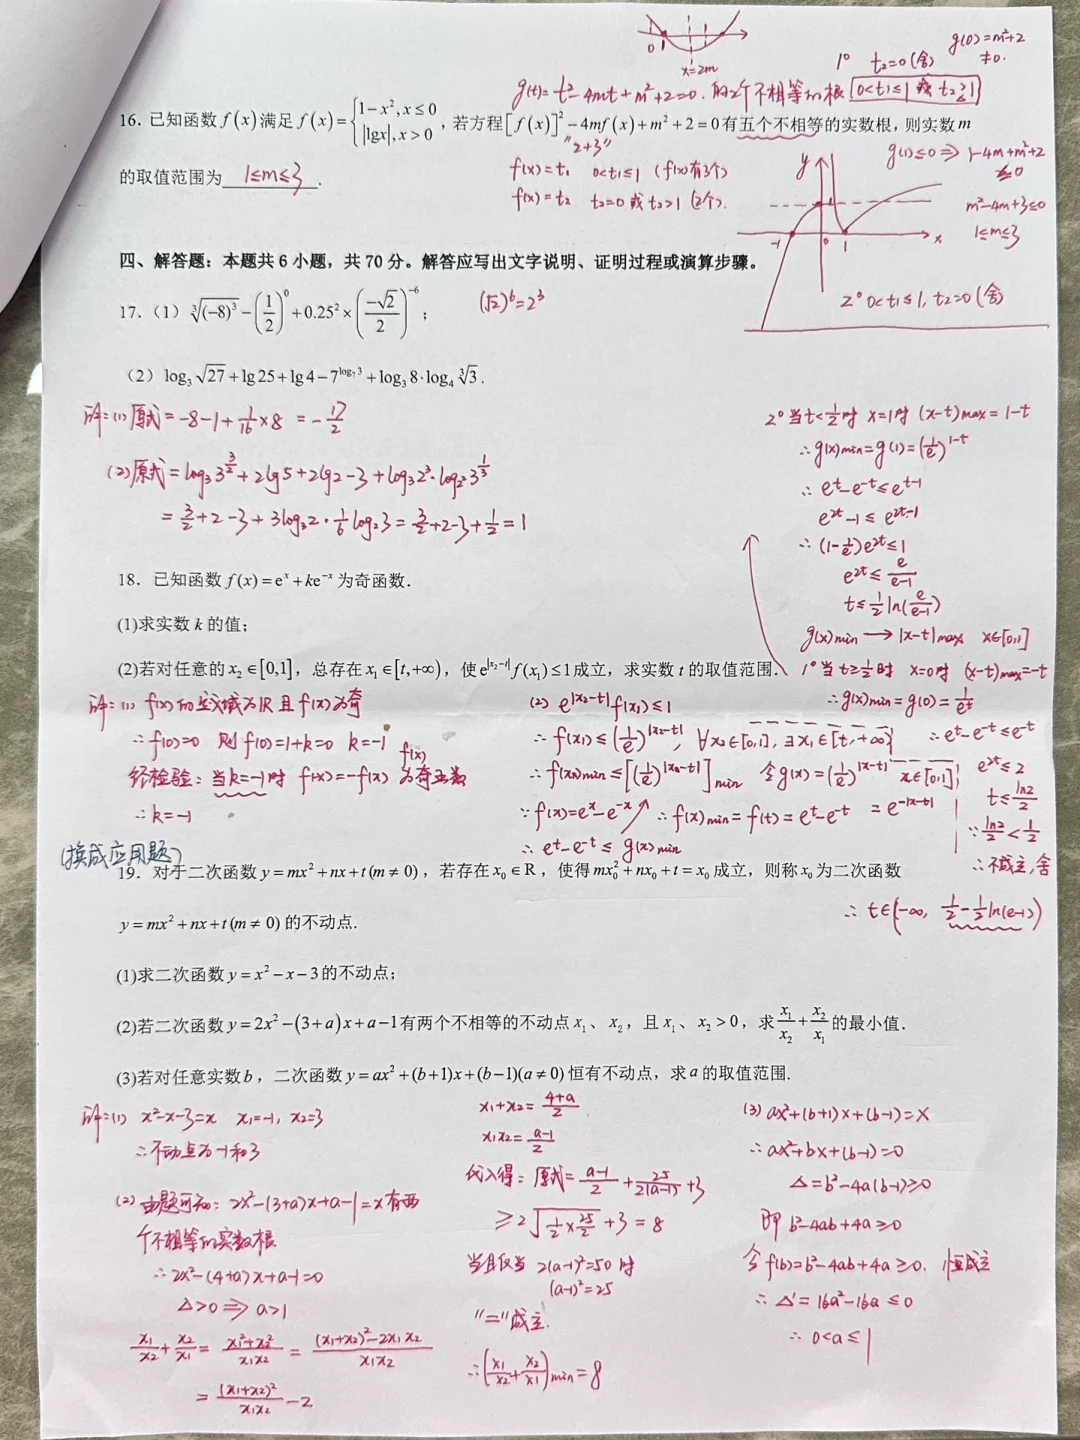 0 1
x=2m
g(0)=m²+2
≠0.
1° t₂=0(舍)
g(t)=t²-4mt+m²+2=0. 的2个不相等的根 0<t₁≤1 或 t₂≥1
16. 已知函数 f(x) 满足 f(x)={1-x², x≤0 |lgx|, x>0 , 若方程[f(x)]²-4mf(x)+m²+2=0有五个不相等的实数根, 则实数m
"2+3"
的取值范围为 1≤m≤3 .
f(x)=t₁ 0<t₁≤1 (f(x)有3个)
f(x)=t₂ t₂=0 或 t₂>1 (2个).
g(1)≤0 ⇒ 1-4m+m²+2
≤0
m²-4m+3≤0
1≤m≤3
y
-1 0 1 x
2° 0<t₁≤1, t₂=0(舍)
四、解答题：本题共6小题，共70分。解答应写出文字说明、证明过程或演算步骤。
17. (1) ∛(-8)³-(1/2)⁰+0.25²×(-√2/2)⁻⁶;
(√2)⁶=2³
(2) log₃√27+lg25+lg4-7^(log₇3)+log₃8·log₄∛3.
解:(1)原式=-8-1+1/16×8 =-17/2
(2)原式=log₃3^(3/2)+2lg5+2lg2-3+log₃2³·log₂²3^(1/3)
=3/2+2-3+3log₃2·1/6log₂3=3/2+2-3+1/2=1
2° 当t<1/2时 x=1时 (x-t)max=1-t
∴g(x)min=g(1)=(1/e)^(1-t)
∴ e^t-e^(-t)≤e^(t-1)
e^(2t)-1≤e^(2t-1)
∴(1-1/e)e^(2t)≤1
e^(2t)≤e/(e-1)
t≤1/2ln(e/(e-1))
18. 已知函数 f(x)=eˣ+ke⁻ˣ 为奇函数.
(1)求实数 k 的值;
(2)若对任意的 x₂∈[0,1], 总存在 x₁∈[t,+∞), 使e^|x₂-t| f(x₁)≤1成立, 求实数 t 的取值范围.
g(x)min → |x-t|max x∈[0,1]
1° 当t≥1/2时 x=0时 (x-t)max=-t
∴g(x)min=g(0)=1/e^t
∴e^t-e^(-t)≤e^(-t)
e^(2t)≤2
t≤ln2/2
∵ln2/2<1/2
∴不成立,舍
解:(1) f(x)的定义域为R 且 f(x)为奇
∴f(0)=0 则 f(0)=1+k=0 k=-1
经检验: 当k=-1时 f(-x)=-f(x) f(x)为奇函数
∴k=-1
(2) e^|x₂-t| f(x₁)≤1
∴f(x₁)≤(1/e)^|x₂-t|, ∀x₂∈[0,1], ∃x₁∈[t,+∞)
∴f(x₁)min≤[(1/e)^|x₂-t|]min 令g(x)=(1/e)^|x-t| x∈[0,1]
=e^(-|x-t|)
∵f(x)=eˣ-e⁻ˣ↗ ∴f(x)min=f(t)=e^t-e^(-t)
∴e^t-e^(-t)≤g(x)min
∴t∈(-∞, 1/2-1/2ln(e-1))
(换成应用题)
19. 对于二次函数 y=mx²+nx+t(m≠0), 若存在 x₀∈R, 使得 mx₀²+nx₀+t=x₀ 成立, 则称 x₀ 为二次函数
y=mx²+nx+t(m≠0) 的不动点.
(1)求二次函数 y=x²-x-3 的不动点;
(2)若二次函数 y=2x²-(3+a)x+a-1有两个不相等的不动点 x₁、x₂, 且 x₁、x₂>0, 求 x₁/x₂+x₂/x₁ 的最小值.
(3)若对任意实数 b, 二次函数 y=ax²+(b+1)x+(b-1)(a≠0) 恒有不动点, 求 a 的取值范围.
解:(1) x²-x-3=x x₁=-1, x₂=3
∴不动点为-1和3
(2) 由题可知: 2x²-(3+a)x+a-1=x有两
个不相等的实数根
∴2x²-(4+a)x+a-1=0
△>0 ⇒ a>1
x₁/x₂+x₂/x₁=(x₁²+x₂²)/(x₁x₂)=((x₁+x₂)²-2x₁x₂)/(x₁x₂)
=(x₁+x₂)²/(x₁x₂)-2
x₁+x₂=(4+a)/2
x₁x₂=(a-1)/2
代入得: 原式=(a-1)/2+25/(2(a-1))+3
≥2√(1/2×25/2)+3=8
当且仅当 2(a-1)²=50时
(a-1)²=25
"="成立.
∴(x₁/x₂+x₂/x₁)min=8
(3) ax²+(b+1)x+(b-1)=x
∴ax²+bx+(b-1)=0
△=b²-4a(b-1)≥0
即 b²-4ab+4a≥0
令f(b)=b²-4ab+4a≥0. 恒成立
∴△'=16a²-16a≤0
∴0<a≤1